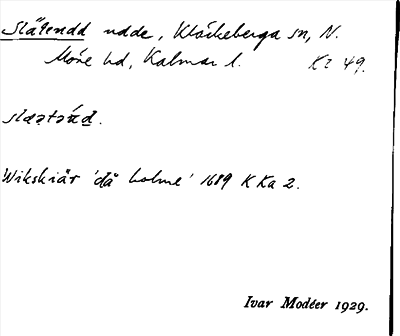 Slätendd udde, Kläckeberga sn, N.
Möre hd, Kalmar l. Kl 49.
slǝtǝnd.
Wikskiär 'då holme' 1689 K Ka 2.
Ivar Modéer 1929.